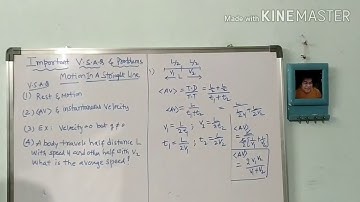 Made with KINEMASTER
Important V.S.A.Q & Problems
Motion In A Straight Line
V.S.A.Q
(1) Rest & Motion
(2) <AV> & instantaneous velocity
(3) EX: Velocity=0 but a≠0
(4) A body travels half distance L
with speed V₁ and other half with V₂
What is the average speed?
L/2 L/2
V₁ V₂
<AV> = T.D / = L/2 + L/2 / t₁+t₂
<AV> = L / t₁+t₂
V₁ = L / 2t₁ ; V₂ = L / 2t₂
t₁ = L / 2V₁ ; t₂ = L / 2V₂
<AV>
<AV>
= 2V₁V₂ / V₁+V₂